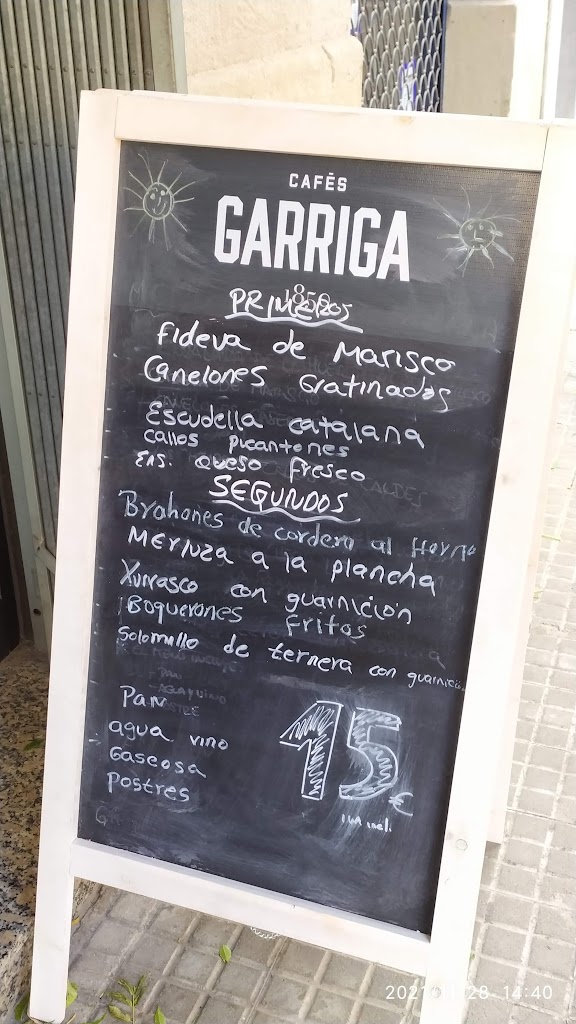 CAFÈS
GARRIGA
1850
PRIMEROS
fideva de Marisco
Canelones Gratinados
Escudella catalana
callos picantones
Ens. queso fresco
SEGUNDOS
Brahones de cordero al Horno
Merluza a la plancha
Xurrasco con guarnicion
Boquerones fritos
Solomillo de ternera con guarnicio.
Pan
agua vino
Gaseosa
Postres
15 €
IVA incl.
28 14:40